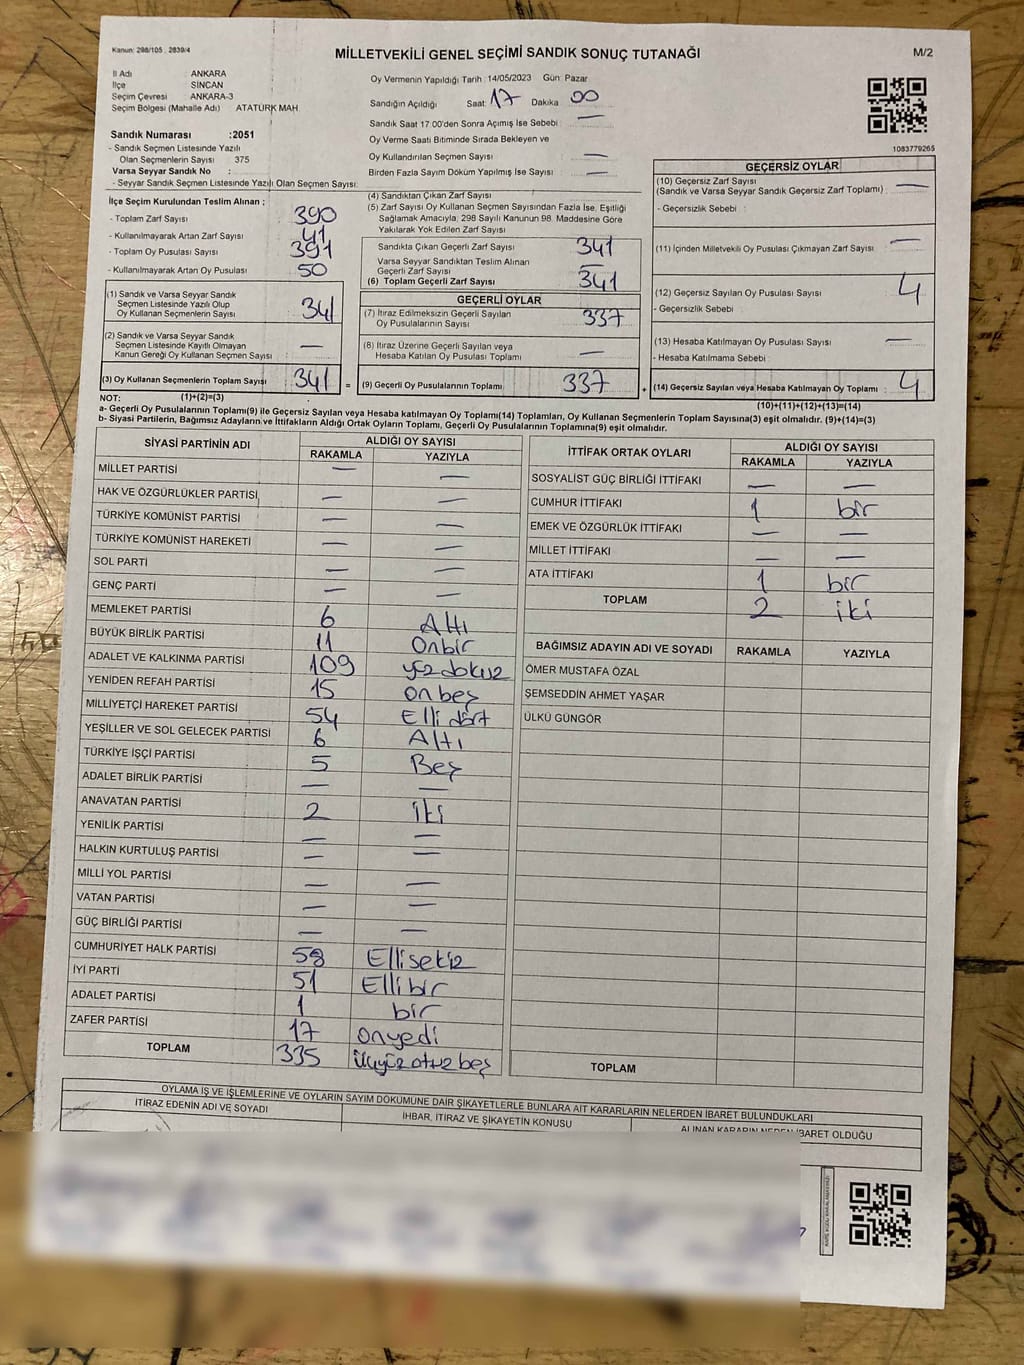 Kanun: 298/105 , 2839/4
MİLLETVEKİLİ GENEL SEÇİMİ SANDIK SONUÇ TUTANAĞI
M/2
İl Adı : ANKARA
İlçe : SİNCAN
Seçim Çevresi : ANKARA-3
Seçim Bölgesi (Mahalle Adı) ATATÜRK MAH.
Oy Vermenin Yapıldığı Tarih :14/05/2023 Gün: Pazar
Sandığın Açıldığı Saat: 17 Dakika 00
Sandık Saat 17:00'den Sonra Açımış İse Sebebi : —
Oy Verme Saati Bitiminde Sırada Bekleyen ve
Oy Kullandırılan Seçmen Sayısı : —
Birden Fazla Sayım Döküm Yapılmış İse Sayısı : —
1083779265
Sandık Numarası :2051
- Sandık Seçmen Listesinde Yazılı
Olan Seçmenlerin Sayısı : 375
Varsa Seyyar Sandık No :
- Seyyar Sandık Seçmen Listesinde Yazılı Olan Seçmen Sayısı:
İlçe Seçim Kurulundan Teslim Alınan :
- Toplam Zarf Sayısı : 390
- Kullanılmayarak Artan Zarf Sayısı : 41
- Toplam Oy Pusulası Sayısı : 391
- Kullanılmayarak Artan Oy Pusulası : 50
(1) Sandık ve Varsa Seyyar Sandık
Seçmen Listesinde Yazılı Olup
Oy Kullanan Seçmenlerin Sayısı : 341
(2) Sandık ve Varsa Seyyar Sandık
Seçmen Listesinde Kayıtlı Olmayan
Kanun Gereği Oy Kullanan Seçmen Sayısı : —
(3) Oy Kullanan Seçmenlerin Toplam Sayısı : 341 =
(4) Sandıktan Çıkan Zarf Sayısı :
(5) Zarf Sayısı Oy Kullanan Seçmen Sayısından Fazla İse, Eşitliği
Sağlamak Amacıyla; 298 Sayılı Kanunun 98. Maddesine Göre
Yakılarak Yok Edilen Zarf Sayısı :
Sandıkta Çıkan Geçerli Zarf Sayısı : 341
Varsa Seyyar Sandıktan Teslim Alınan
Geçerli Zarf Sayısı : —
(6) Toplam Geçerli Zarf Sayısı : 341
GEÇERLİ OYLAR
(7) İtiraz Edilmeksizin Geçerli Sayılan
Oy Pusulalarının Sayısı : 337
(8) İtiraz Üzerine Geçerli Sayılan veya
Hesaba Katılan Oy Pusulası Toplamı : —
(9) Geçerli Oy Pusulalarının Toplamı : 337 +
GEÇERSİZ OYLAR
(10) Geçersiz Zarf Sayısı
(Sandık ve Varsa Seyyar Sandık Geçersiz Zarf Toplamı) : —
- Geçersizlik Sebebi :
(11) İçinden Milletvekili Oy Pusulası Çıkmayan Zarf Sayısı : —
(12) Geçersiz Sayılan Oy Pusulası Sayısı : 4
- Geçersizlik Sebebi :
(13) Hesaba Katılmayan Oy Pusulası Sayısı : —
- Hesaba Katılmama Sebebi :
(14) Geçersiz Sayılan veya Hesaba Katılmayan Oy Toplamı : 4
NOT: (1)+(2)=(3)
(10)+(11)+(12)+(13)=(14)
a- Geçerli Oy Pusulalarının Toplamı(9) ile Geçersiz Sayılan veya Hesaba katılmayan Oy Toplamı(14) Toplamları, Oy Kullanan Seçmenlerin Toplam Sayısına(3) eşit olmalıdır. (9)+(14)=(3)
b- Siyasi Partilerin, Bağımsız Adayların ve İttifakların Aldığı Ortak Oyların Toplamı, Geçerli Oy Pusulalarının Toplamına(9) eşit olmalıdır.
SİYASİ PARTİNİN ADI ALDIĞI OY SAYISI
RAKAMLA YAZIYLA
MİLLET PARTİSİ — —
HAK VE ÖZGÜRLÜKLER PARTİSİ — —
TÜRKİYE KOMÜNİST PARTİSİ — —
TÜRKİYE KOMÜNİST HAREKETİ — —
SOL PARTİ — —
GENÇ PARTİ — —
MEMLEKET PARTİSİ 6 Altı
BÜYÜK BİRLİK PARTİSİ 11 Onbir
ADALET VE KALKINMA PARTİSİ 109 yüz dokuz
YENİDEN REFAH PARTİSİ 15 on beş
MİLLİYETÇİ HAREKET PARTİSİ 54 Elli dört
YEŞİLLER VE SOL GELECEK PARTİSİ 6 Altı
TÜRKİYE İŞÇİ PARTİSİ 5 Beş
ADALET BİRLİK PARTİSİ — —
ANAVATAN PARTİSİ 2 iki
YENİLİK PARTİSİ — —
HALKIN KURTULUŞ PARTİSİ — —
MİLLİ YOL PARTİSİ — —
VATAN PARTİSİ — —
GÜÇ BİRLİĞİ PARTİSİ — —
CUMHURİYET HALK PARTİSİ 58 Ellisekiz
İYİ PARTİ 51 Elli bir
ADALET PARTİSİ 1 bir
ZAFER PARTİSİ 17 onyedi
TOPLAM 335 üçyüz otuz beş
İTTİFAK ORTAK OYLARI ALDIĞI OY SAYISI
RAKAMLA YAZIYLA
SOSYALİST GÜÇ BİRLİĞİ İTTİFAKI — —
CUMHUR İTTİFAKI 1 bir
EMEK VE ÖZGÜRLÜK İTTİFAKI — —
MİLLET İTTİFAKI — —
ATA İTTİFAKI 1 bir
TOPLAM 2 iki
BAĞIMSIZ ADAYIN ADI VE SOYADI RAKAMLA YAZIYLA
ÖMER MUSTAFA ÖZAL
ŞEMSEDDİN AHMET YAŞAR
ÜLKÜ GÜNGÖR
TOPLAM
OYLAMA İŞ VE İŞLEMLERİNE VE OYLARIN SAYIM DÖKÜMÜNE DAİR ŞİKAYETLERLE BUNLARA AİT KARARLARIN NELERDEN İBARET BULUNDUKLARI
İTİRAZ EDENİN ADI VE SOYADI
İHBAR, İTİRAZ VE ŞİKAYETİN KONUSU
ALINAN KARARIN NEDEN İBARET OLDUĞU